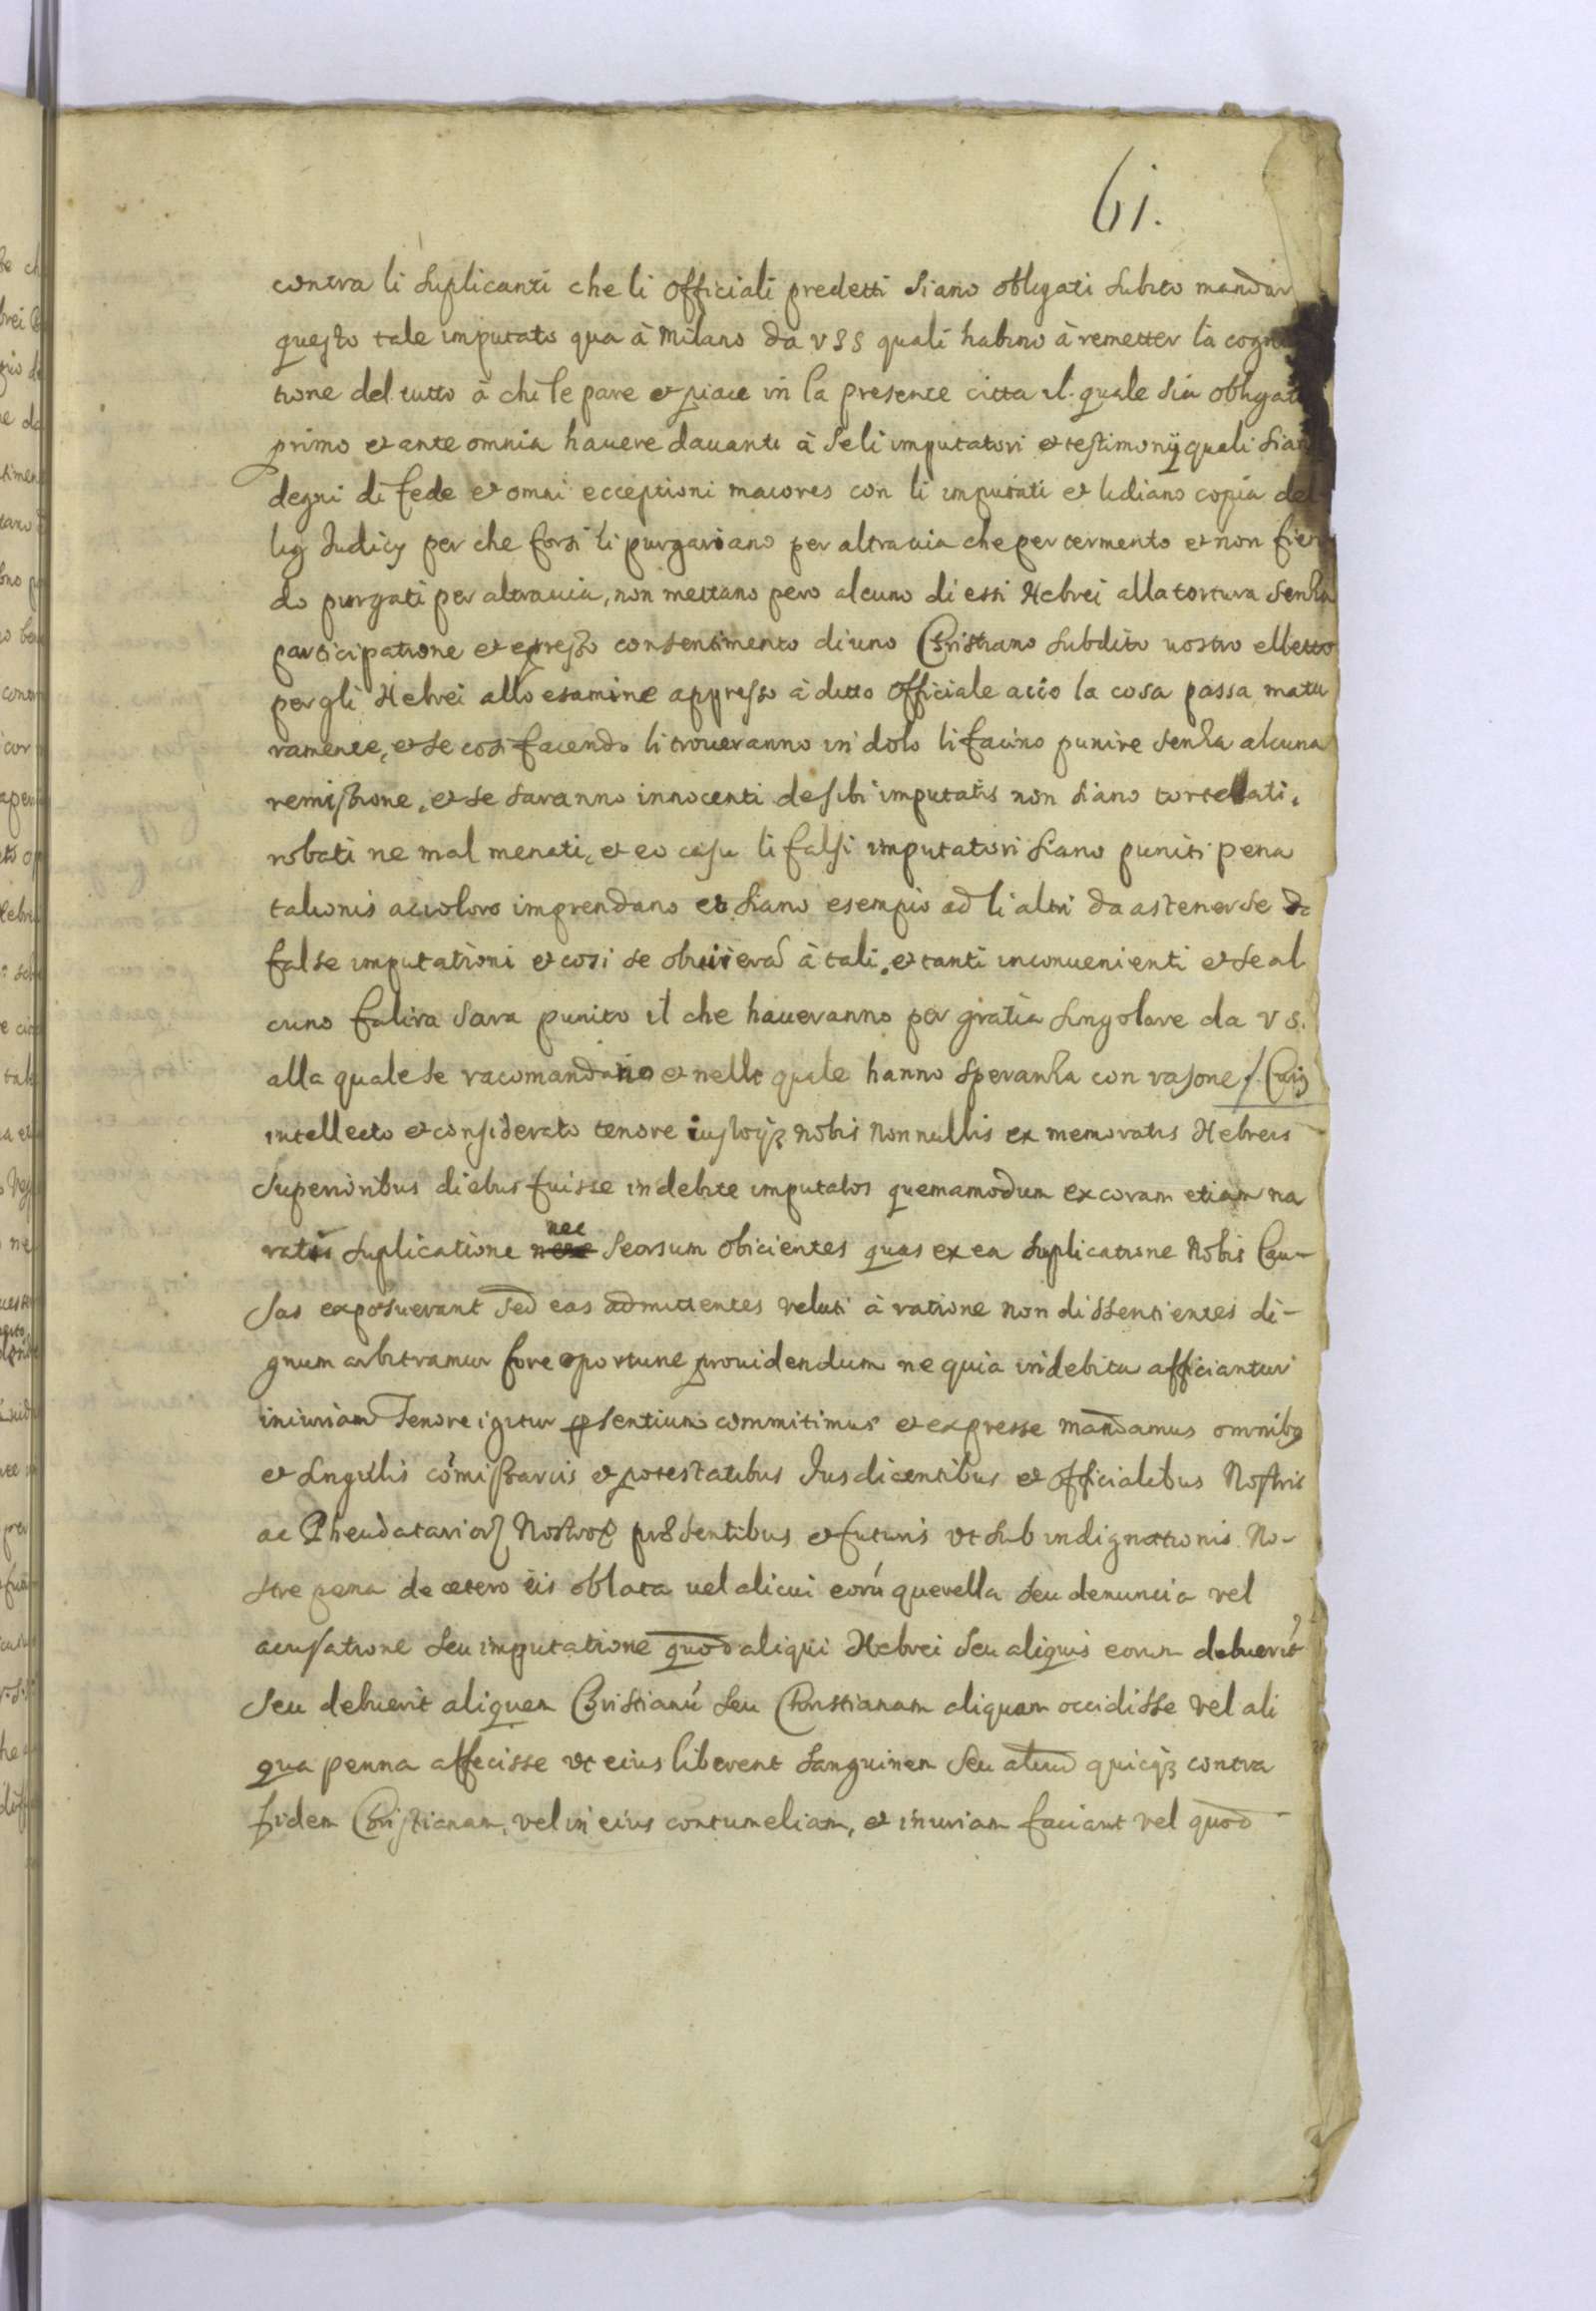 61.
contra li suplicanti che li officiali predetti siano obligati subito mandar
questo tale imputato qua à Milano da v s s quali habino à remetter la cogni
tione del tutto à chi le pare et piace in la presente citta il quale sia obligat
primo et ante omnia havere davanti à se li imputatori et testimonij quali sian
degni di fede et omni ecceptioni maiores con li imputati et lidiano copia del
lij Indicij per che forsi li purgariano per altra via che per tormento et non fien
do purgati per altra via, non mettano pero alcuno di essi Hebrei alla tortura senza
participatione et expresso consentimento di uno Christiano subdito vostro elletto
per gli Hebrei allo esamine appresso à ditto Officiale acio la cosa passa matu
ramente, et se cosi facendo li troveranno in dolo li facino punire senza alcuna
remissione, et se saranno innocenti de sibi imputatis non siano tortellati,
robati ne mal menati, et eo casu li falsi imputatori siano puniti pena
talionis acio loro imprendano et siano esempio ad li altri da astenerse da
false imputationi et cosi se obviera à tali, et tanti inconvenienti et se al
cuno falira sara punito il che haveranno per gratia singolare da v s.
alla quale se racomandano et nella quale hanno speranza con rasone /. Cuis
intellecto et considerato tenore iustoq3 nobis nonnullis ex memoratis Hebreis
superioribus diebus fuisse indebite imputatos quemamodum ex coram etiam na
ratis suplicatione nec seorsum obicientes quas ex ea suplicatione Nobis Cau-
sas exposuerant sed eas admittentes veluti à ratione non dissentientes di-
gnum arbitramur fore oportune providendum ne quia indebita afficiantur
iniuriam Tenore igitur psentium commitimus et expresse mandamus omnibus
et singulis comissariis et potestatibus Iusdicentibus et officialibus Nostris
ac Pheudatarior Nostror presentibus et futuris vt sub indignationis No-
stre pena de cetero iis oblata vel alicui eorú querella seu denuncia vel
acusatione seu imputatione quod aliqui Hebrei seu aliquis eorum debuerit
seu debuerit aliquem Christianú seu Christianam aliquam occidisse vel ali
qua penna affecisse vt eius liberent sanguinem seu aliud quicq3 contra
fidem Christianam, vel in eius contumeliam, et iniuriam faciant vel quod